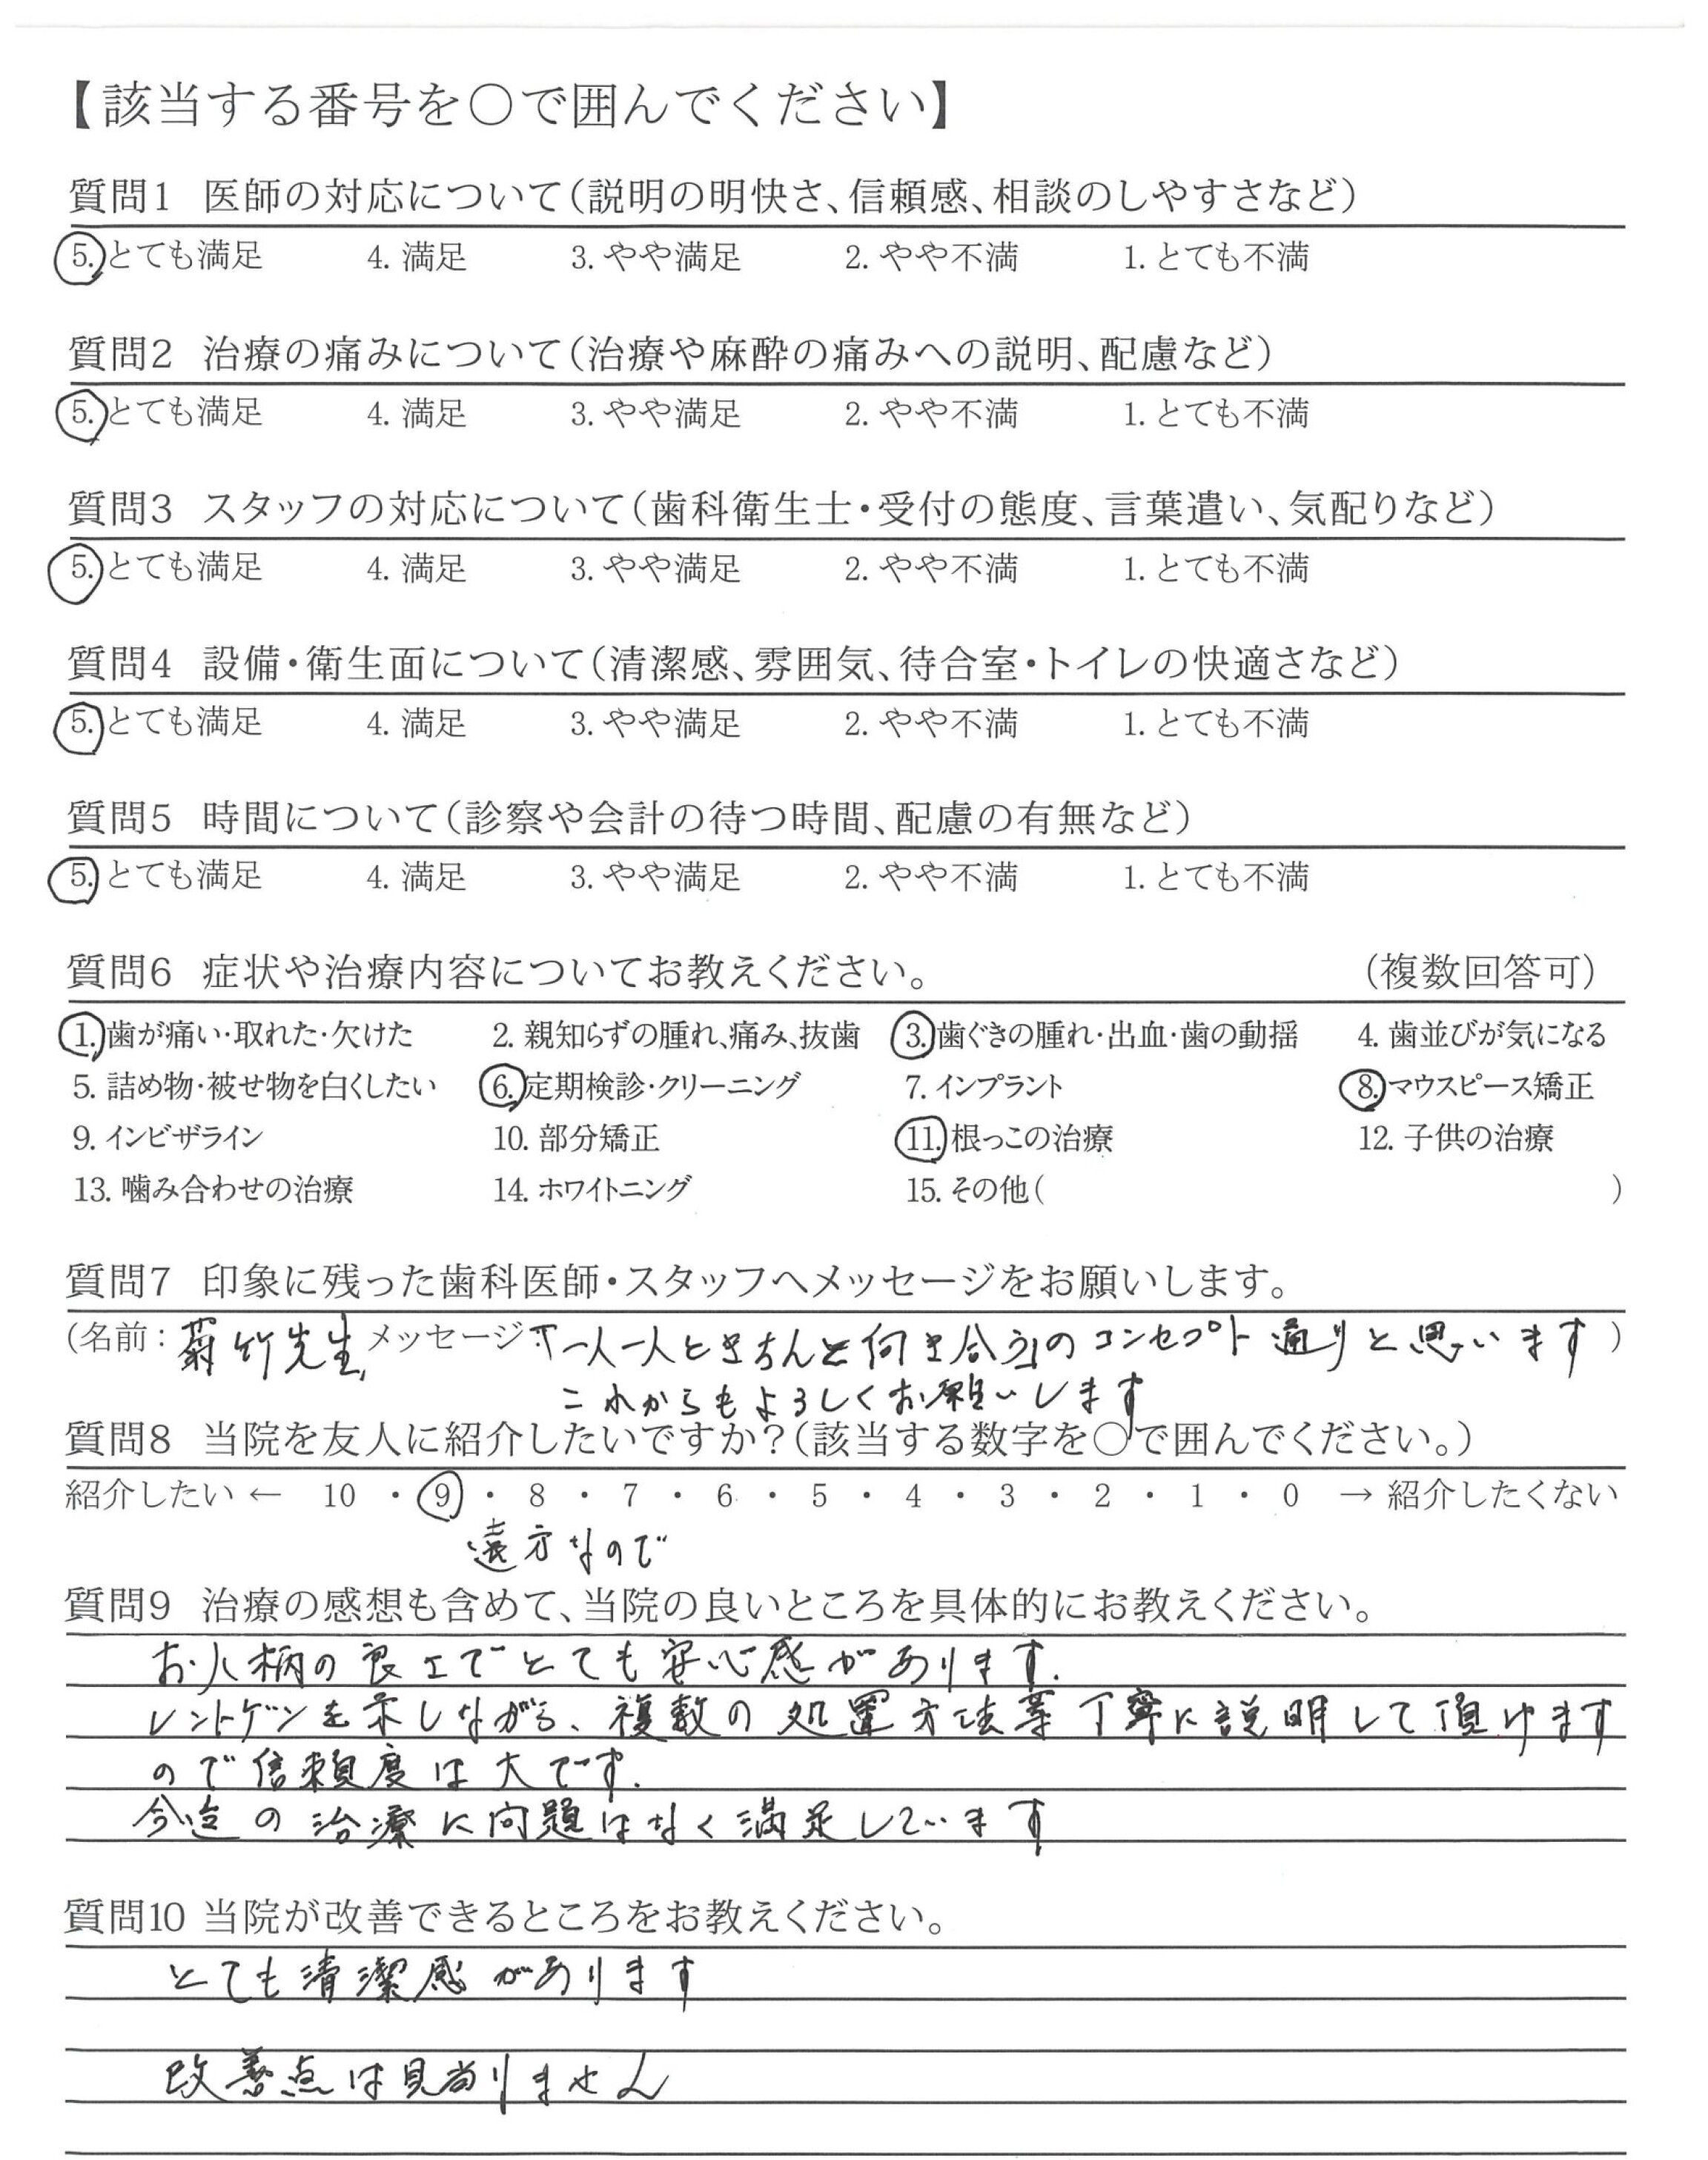 【該当する番号を○で囲んでください】
質問1 医師の対応について(説明の明快さ、信頼感、相談のしやすさなど)
5. とても満足 4. 満足 3. やや満足 2. やや不満 1. とても不満
質問2 治療の痛みについて(治療や麻酔の痛みへの説明、配慮など)
5. とても満足 4. 満足 3. やや満足 2. やや不満 1. とても不満
質問3 スタッフの対応について(歯科衛生士・受付の態度、言葉遣い、気配りなど)
5. とても満足 4. 満足 3. やや満足 2. やや不満 1. とても不満
質問4 設備・衛生面について(清潔感、雰囲気、待合室・トイレの快適さなど)
5. とても満足 4. 満足 3. やや満足 2. やや不満 1. とても不満
質問5 時間について(診察や会計の待つ時間、配慮の有無など)
5. とても満足 4. 満足 3. やや満足 2. やや不満 1. とても不満
質問6 症状や治療内容についてお教えください。 (複数回答可)
1. 歯が痛い・取れた・欠けた 2. 親知らずの腫れ、痛み、抜歯 3. 歯ぐきの腫れ・出血・歯の動揺 4. 歯並びが気になる
5. 詰め物・被せ物を白くしたい 6. 定期検診・クリーニング 7. インプラント 8. マウスピース矯正
9. インビザライン 10. 部分矯正 11. 根っこの治療 12. 子供の治療
13. 噛み合わせの治療 14. ホワイトニング 15. その他( )
質問7 印象に残った歯科医師・スタッフへメッセージをお願いします。
(名前: 菊竹先生 メッセージ:「一人一人ときちんと向き合う」のコンセプト通りと思います )
これからもよろしくお願いします
質問8 当院を友人に紹介したいですか?(該当する数字を○で囲んでください。)
紹介したい ← 10 ・ 9 ・ 8 ・ 7 ・ 6 ・ 5 ・ 4 ・ 3 ・ 2 ・ 1 ・ 0 → 紹介したくない
遠方なので
質問9 治療の感想も含めて、当院の良いところを具体的にお教えください。
お人柄の良さでとても安心感があります.
レントゲンを示しながら、複数の処置方法等丁寧に説明して頂けます
ので信頼度は大です.
今迄の治療に問題はなく満足しています
質問10 当院が改善できるところをお教えください。
とても清潔感があります
改善点は見当りません